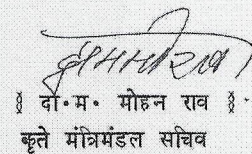 § दो॰म॰ मोहन राव §
कृते मंत्रिमंडल सचिव